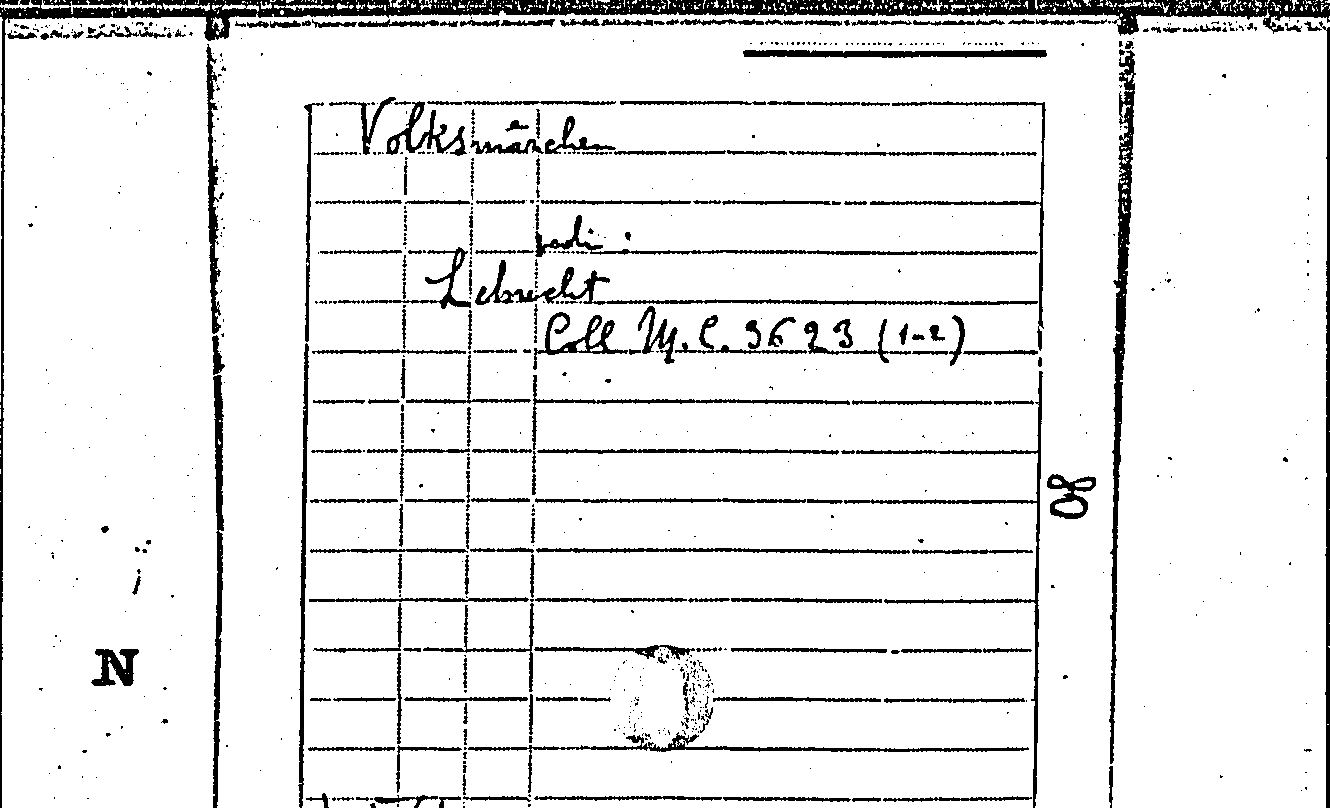 Volksmärchen
vedi :
Lebrecht
Coll M.C. 3623 (1-2)
08
N